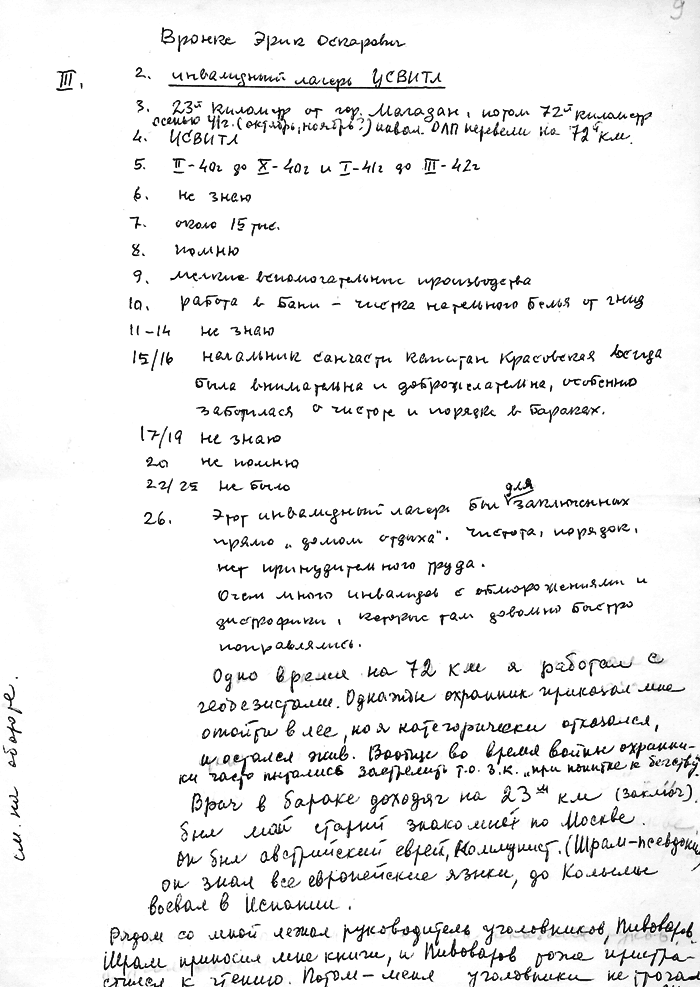 9
Вронке Эрик Оскарович
III. 2. инвалидный лагерь УСВИТЛ
3. 23й километр от гор. Магадан, потом 72й километр
осенью 41г. (октябрь, ноябрь?) назв. ОЛП перевели на 72й км.
4. УСВИТЛ
5. II-40г до X-40г и I-41г до III-42г
6. не знаю
7. около 15 тыс.
8. помню
9. мелкие вспомогательные производства
10. работа в бани – чистка нательного белья от гнид
11-14 не знаю
15/16 начальник санчасти капитан Красовская всегда
была внимательна и доброжелательна, особенно
заботилась о чистоте и порядке в бараках.
17/19 не знаю
20 не помню
22/25 не было
26. Этот инвалидный лагерь был для заключенных
прямо „домом отдыха". Чистота, порядок,
нет принудительного труда.
Очень много инвалидов с обморожениями и
дистрофики, которые там довольно быстро
поправлялись.
Одно время на 72 км я работал с
геодезистами. Однажды охранник приказал мне
отойти в лес, но я категорически отказался,
и остался жив. Вообще во время войны охранни-
ки часто пытались застрелить т.о. з.к. „при попытке к бегству"
Врач в бараке доходяг на 23ем км (заключ).
был мой старый знакомый по Москве.
он был австрийский еврей, коммунист. (Шрам-псевдоним)
он знал все европейские языки, до Колымы
воевал в Испании.
Рядом со мной лежал руководитель уголовников, Пивоваров,
Шрам приносил мне книги, и Пивоваров тоже пристра-
стился к чтению. Потом – меня уголовники не трогали
см. на обороте.